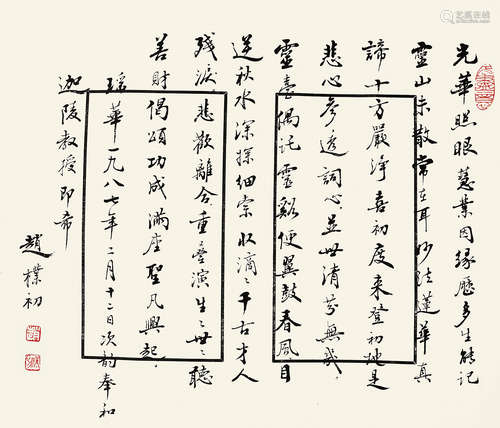 光華照眼慧業因緣歷多生能記
靈山未散常在耳妙法蓮華真
諦十方嚴淨喜初度來登初地是
悲心參透詞心並世清芬無幾
靈臺偶託靈谿便翼鼓春風目
送秋水深探細索收滴〻千古才人
殘淚悲歡離合重疊演生〻世〻聽
善財偈頌功成滿座聖凡興起
瑤華一九八七年二月十二日次韵奉和
迦陵教授即希
趙樸初